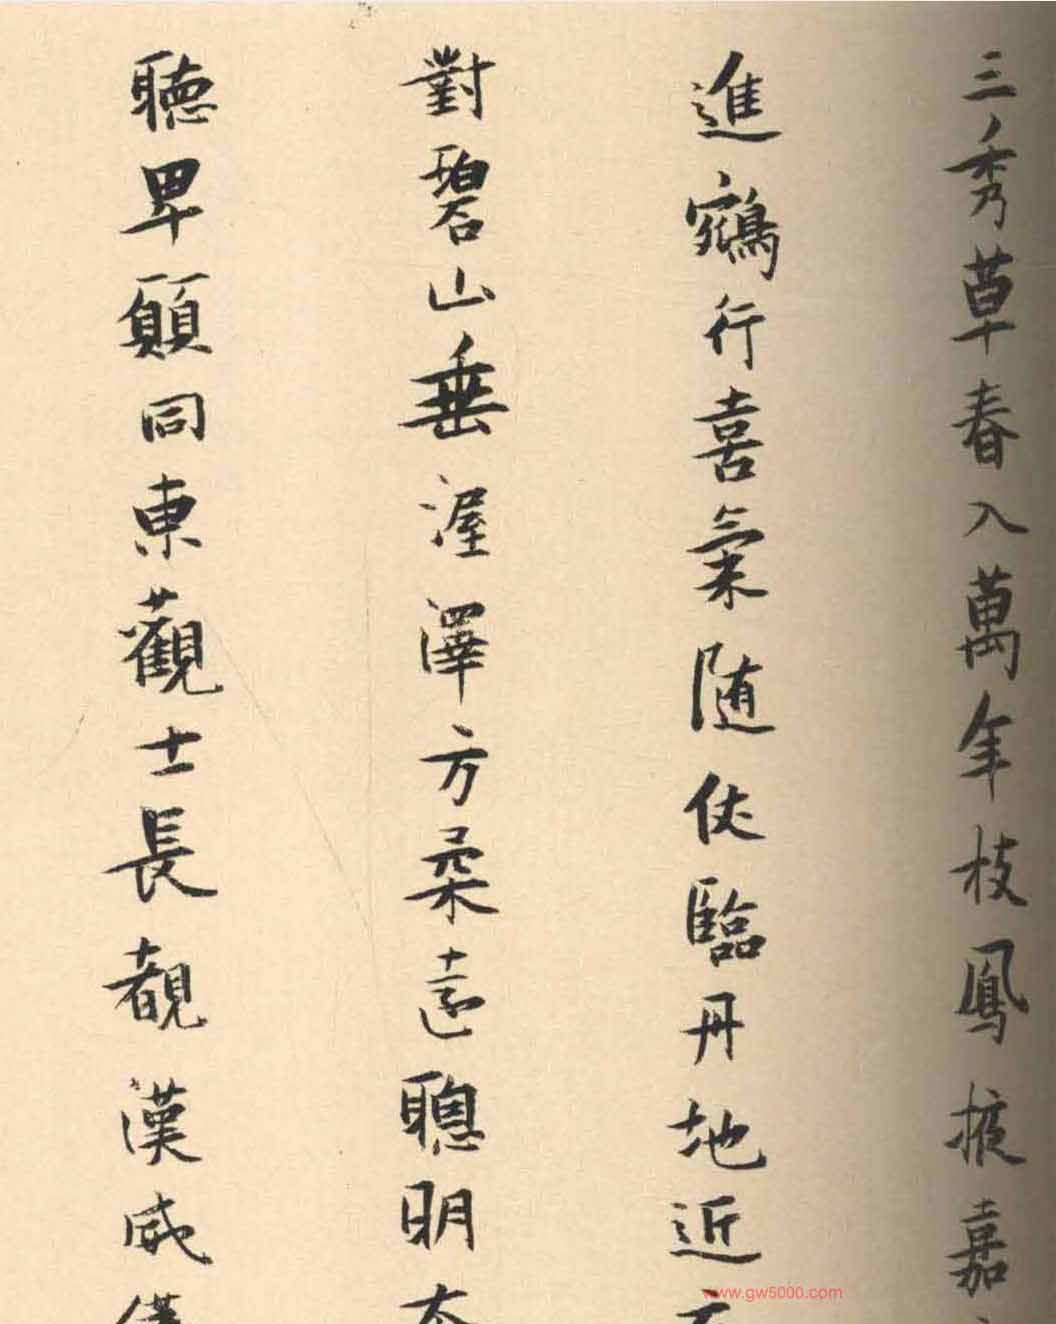 三秀草春入萬年枝鳳掖嘉
進鵷行喜氣随仗臨丹地近
對碧山垂渥澤方柔遠聰明
聴卑願同東觀士長覩漢威
www.gw5000.com